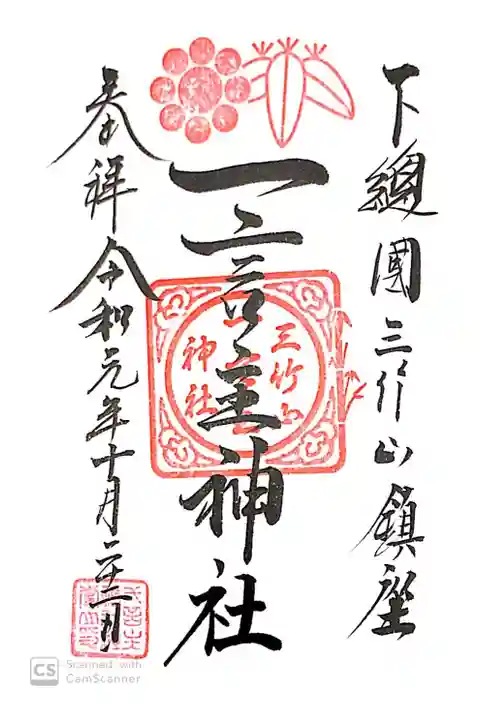 下總國三竹山鎮座
一言主神社
三竹山
神社
奉拝令和元年十月二十二日
CS Scanned with
CamScanner